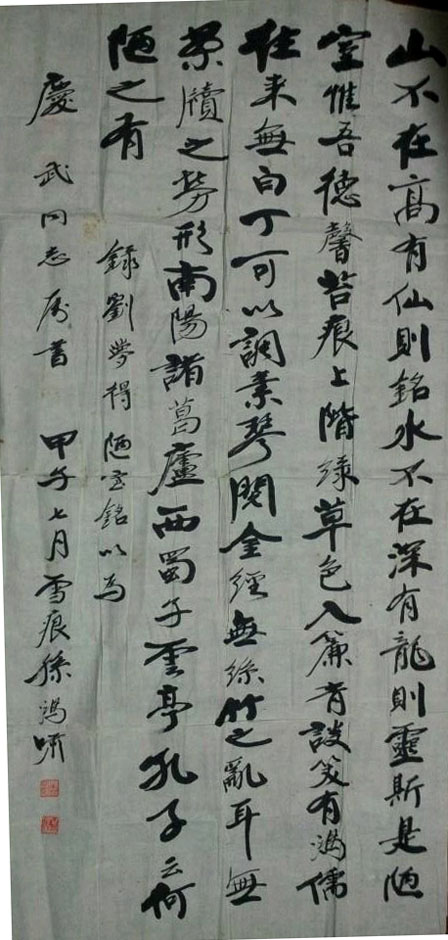 山不在高有仙則銘水不在深有龍則靈斯是陋
室惟吾德馨苔痕上階綠草色入簾青談笑有鴻儒
往來無白丁可以調素琴閱金經無絲竹之亂耳無
案牘之勞形南陽諸葛廬西蜀子雲亭孔子云何
陋之有
錄劉夢得陋室銘以為
慶武同志屬書 甲午七月雪痕孫鴻